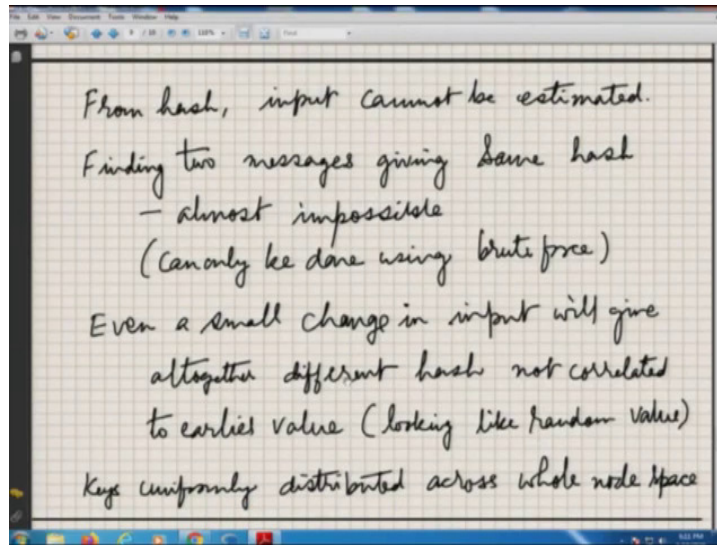 File Edit View Document Tools Window Help
9 / 10 110% Find
From hash, input cannot be estimated.
Finding two messages giving Same hash
– almost impossible
(can only be done using brute force)
Even a small change in input will give
altogether different hash not correlated
to earlier value (looking like random value)
Keys uniformly distributed across whole node space
5:33 PM